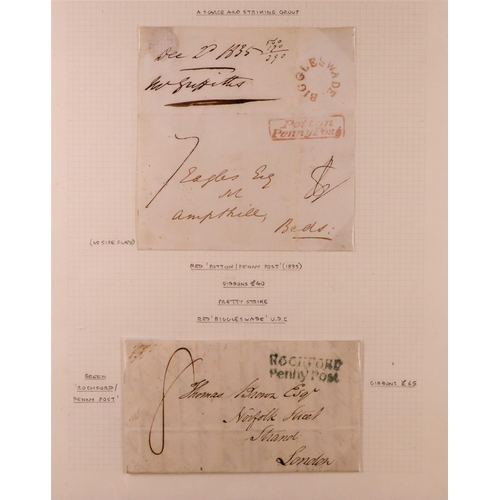 A SCARCE AND STRIKING GROUP
Dec 2d 1835
Mr Griffiths
BIGGLESWADE
Potton
Penny Post
7
Eagles Esq
Ampthill,
Beds:
(NO SIDE FLAPS)
RED 'POTTON/PENNY POST' (1835)
GIBBONS £40
PRETTY STRIKE
RED 'BIGGLESWADE' U.D.C
GREEN
'ROCHFORD/
PENNY POST'
ROCHFORD
Penny Post
GIBBONS £65
8
Thomas Brown Esqr
Norfolk Street
Strand
London